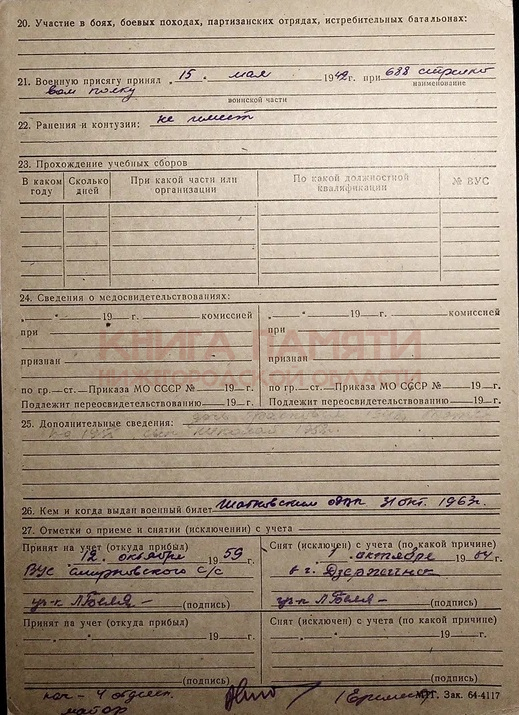 20. Участие в боях, боевых походах, партизанских отрядах, истребительных батальонах:
21. Военную присягу принял „15" мая 1942 г. при 688 стрелко
наименование
вом полку
воинской части
22. Ранения и контузии: не имеет
23. Прохождение учебных сборов
В каком году Сколько дней При какой части или организации По какой должностной квалификации № ВУС
24. Сведения о медосвидетельствованиях:
„ " 19 г. комиссией „ " 19 г. комиссией
при при
КНИГА ПАМЯТИ
признан признан
по гр. ст. Приказа МО СССР № 19 г. по гр. ст. Приказа МО СССР № 19 г.
Подлежит переосвидетельствованию 19 г. Подлежит переосвидетельствованию 19 г.
25. Дополнительные сведения:
сын Николай
26. Кем и когда выдан военный билет Шатковским 31 окт. 1963г.
27. Отметки о приеме и снятии (исключении) с учета
Принят на учет (откуда прибыл) Снят (исключен) с учета (по какой причине)
„12" октября 1959 г. „1" октября 1964 г.
ВУС Смирновского с/с в г. Дзержинск
(подпись) (подпись)
Принят на учет (откуда прибыл) Снят (исключен) с учета (по какой причине)
„ " 19 г. „ " 19 г.
(подпись) (подпись)
нач- 4 отделен. МТГ. Зак. 64-4117
майор